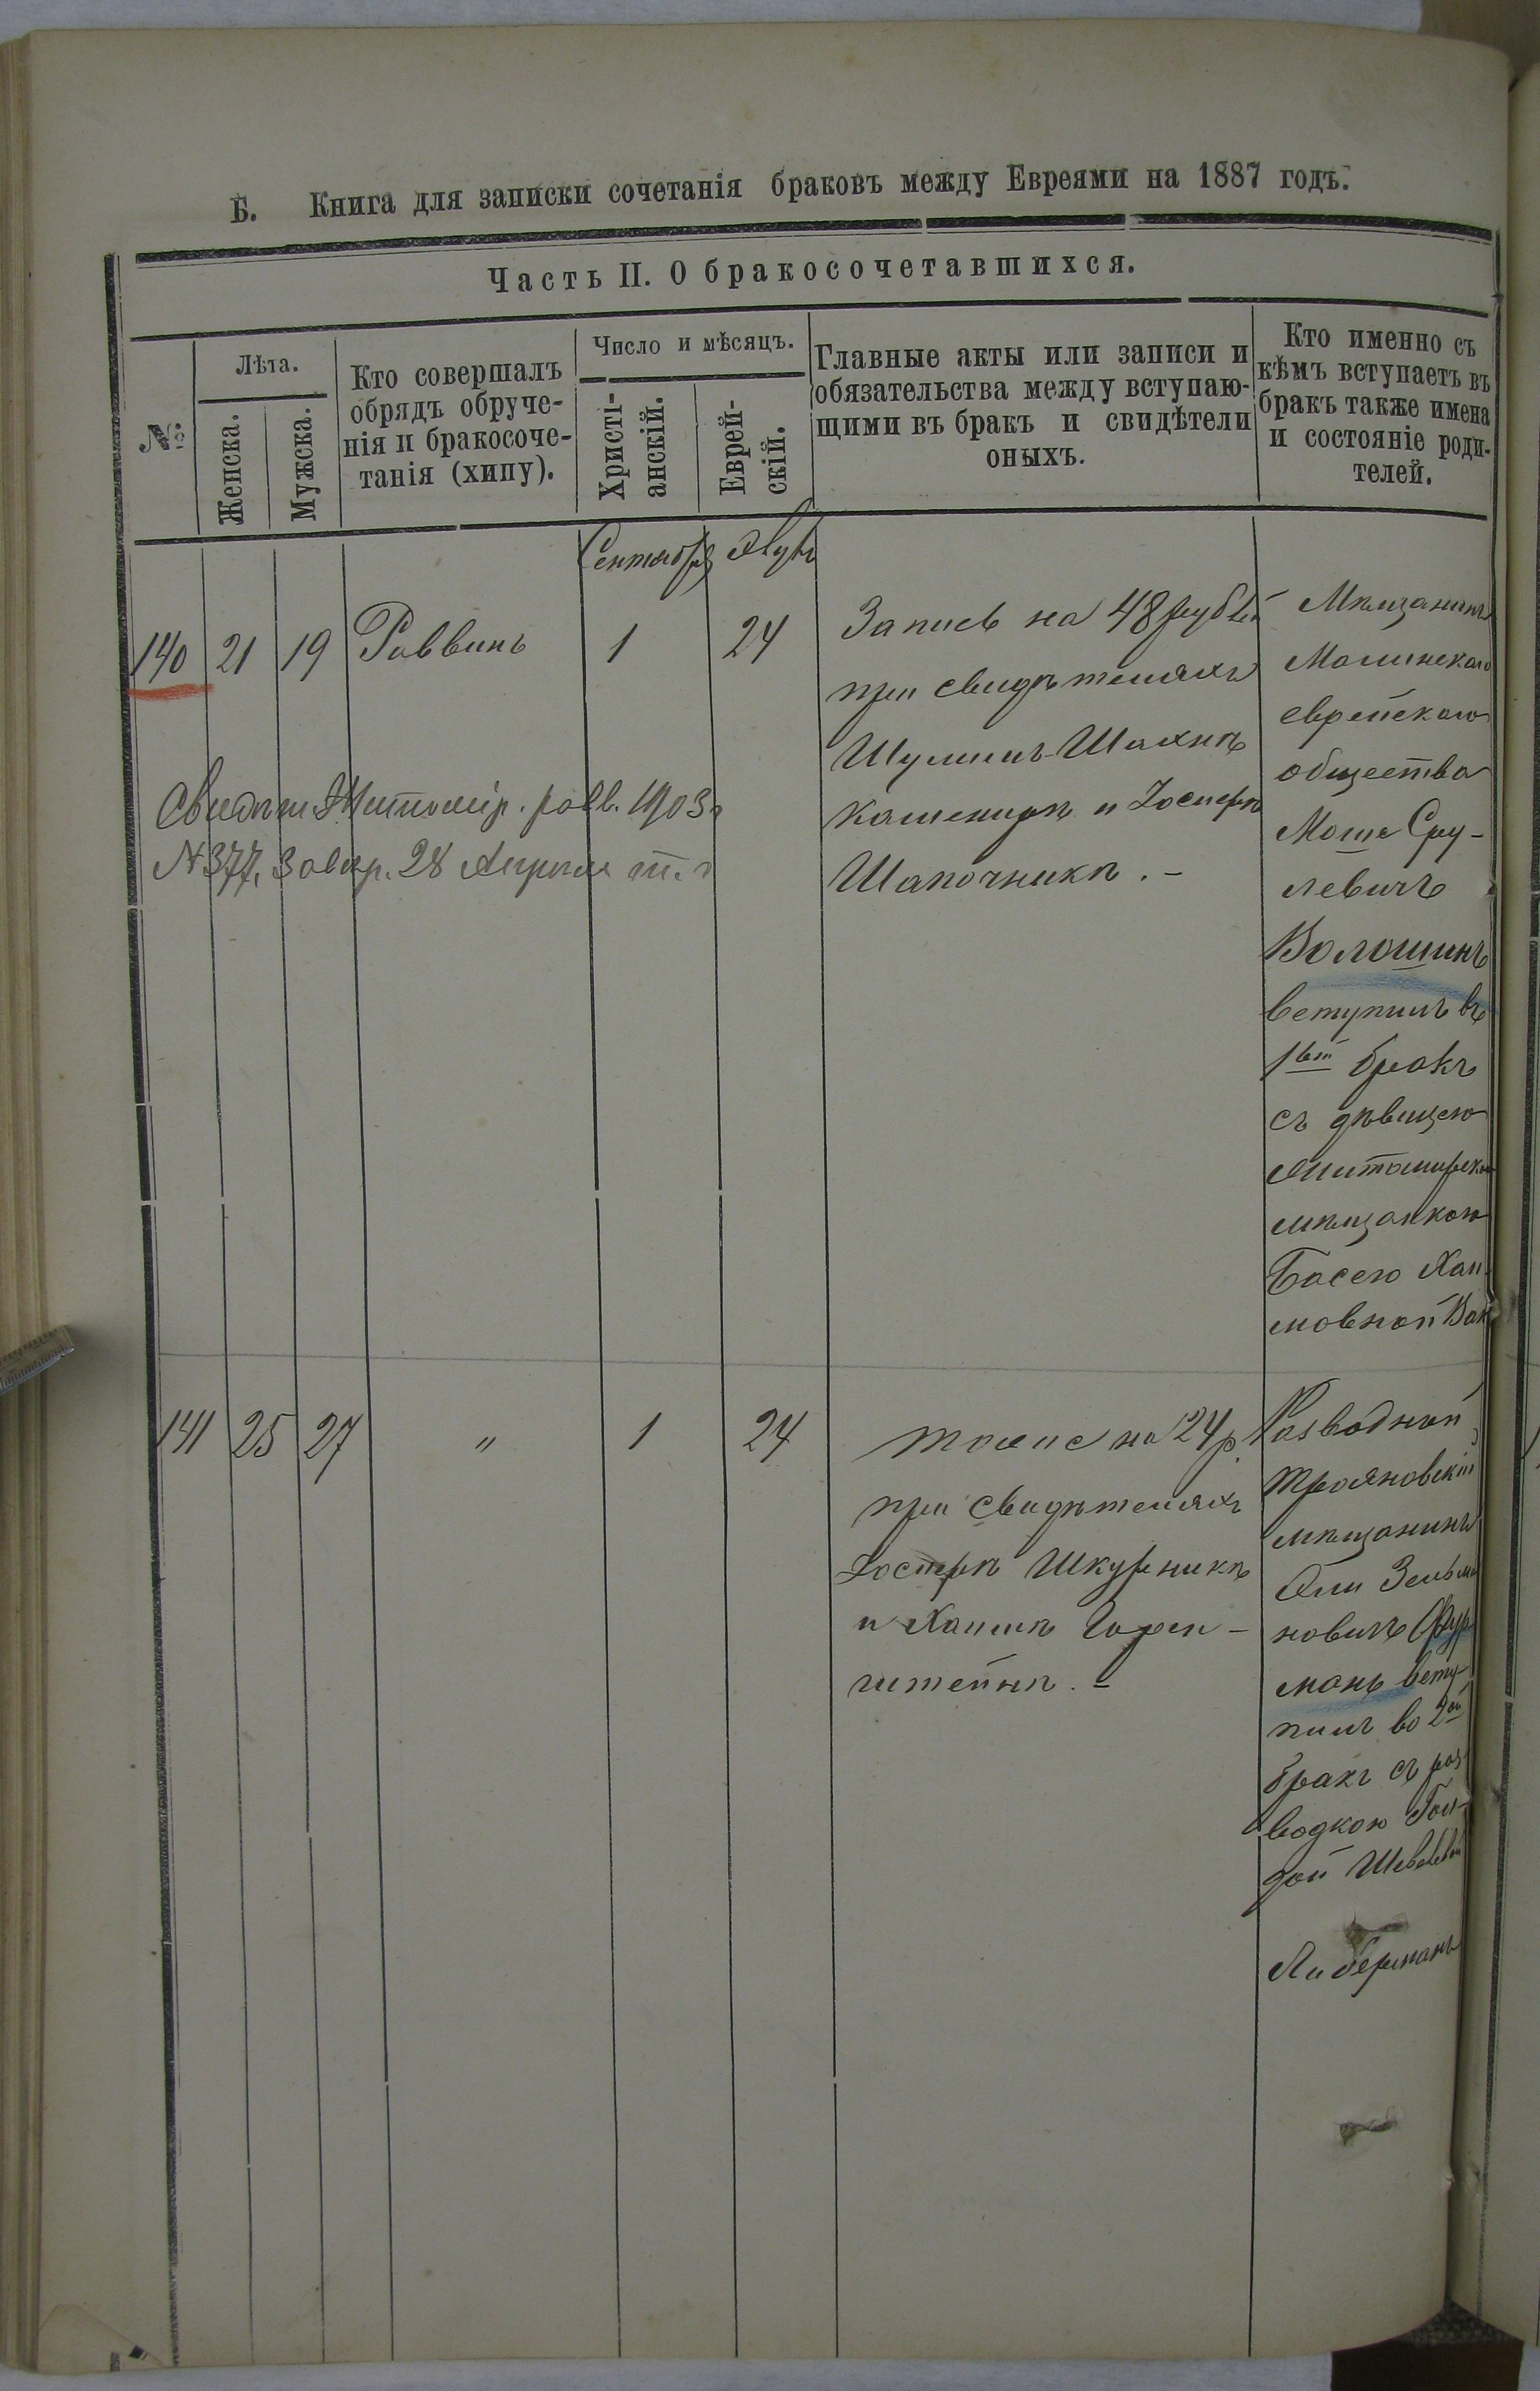 Б. Книга для записки сочетанія браковъ между Евреями на 1887 годъ.
Часть II. О бракосочетавшихся.
№
Лѣта.
Женска.
Мужска.
Кто совершалъ
обрядъ обруче-
нія и бракосоче-
танія (хипу).
Число и мѣсяцъ.
Христі-
анскій.
Еврей-
скій.
Главные акты или записи и
обязательства между вступаю-
щими въ бракъ и свидѣтели
оныхъ.
Кто именно съ
кѣмъ вступаетъ въ
бракъ также имена
и состояніе роди-
телей.
Сентября
140 21 19 Раввинъ 1 24
Запись на 48 рублей
при свидѣтеляхъ
Шулимъ-Шахнѣ
и Іосифѣ
Шапочникѣ. -
Мѣщанинъ
Малинскаго
еврейскаго
общества
Мошко Сру-
левичъ
Волошинъ
вступилъ въ
1ый бракъ
съ дѣвицею
Житомирскою
мѣщанкою
Басею Хаи-
мовной
Свидѣт. Житомір. равв. 1903 г
№ 377. Завѣр. 28 Апрѣля т. г
141 25 27 " 1 24
тоже на 24 р.
при свидѣтеляхъ
Іосифѣ Шкурникѣ
и Хаимѣ Горен-
штейнѣ. -
Разводной
Трояновскій
мѣщанинъ
Зельма
новичъ Фур
манъ всту-
пилъ во 2ой
бракъ съ раз
водкою Гол-
дой
Либерманъ